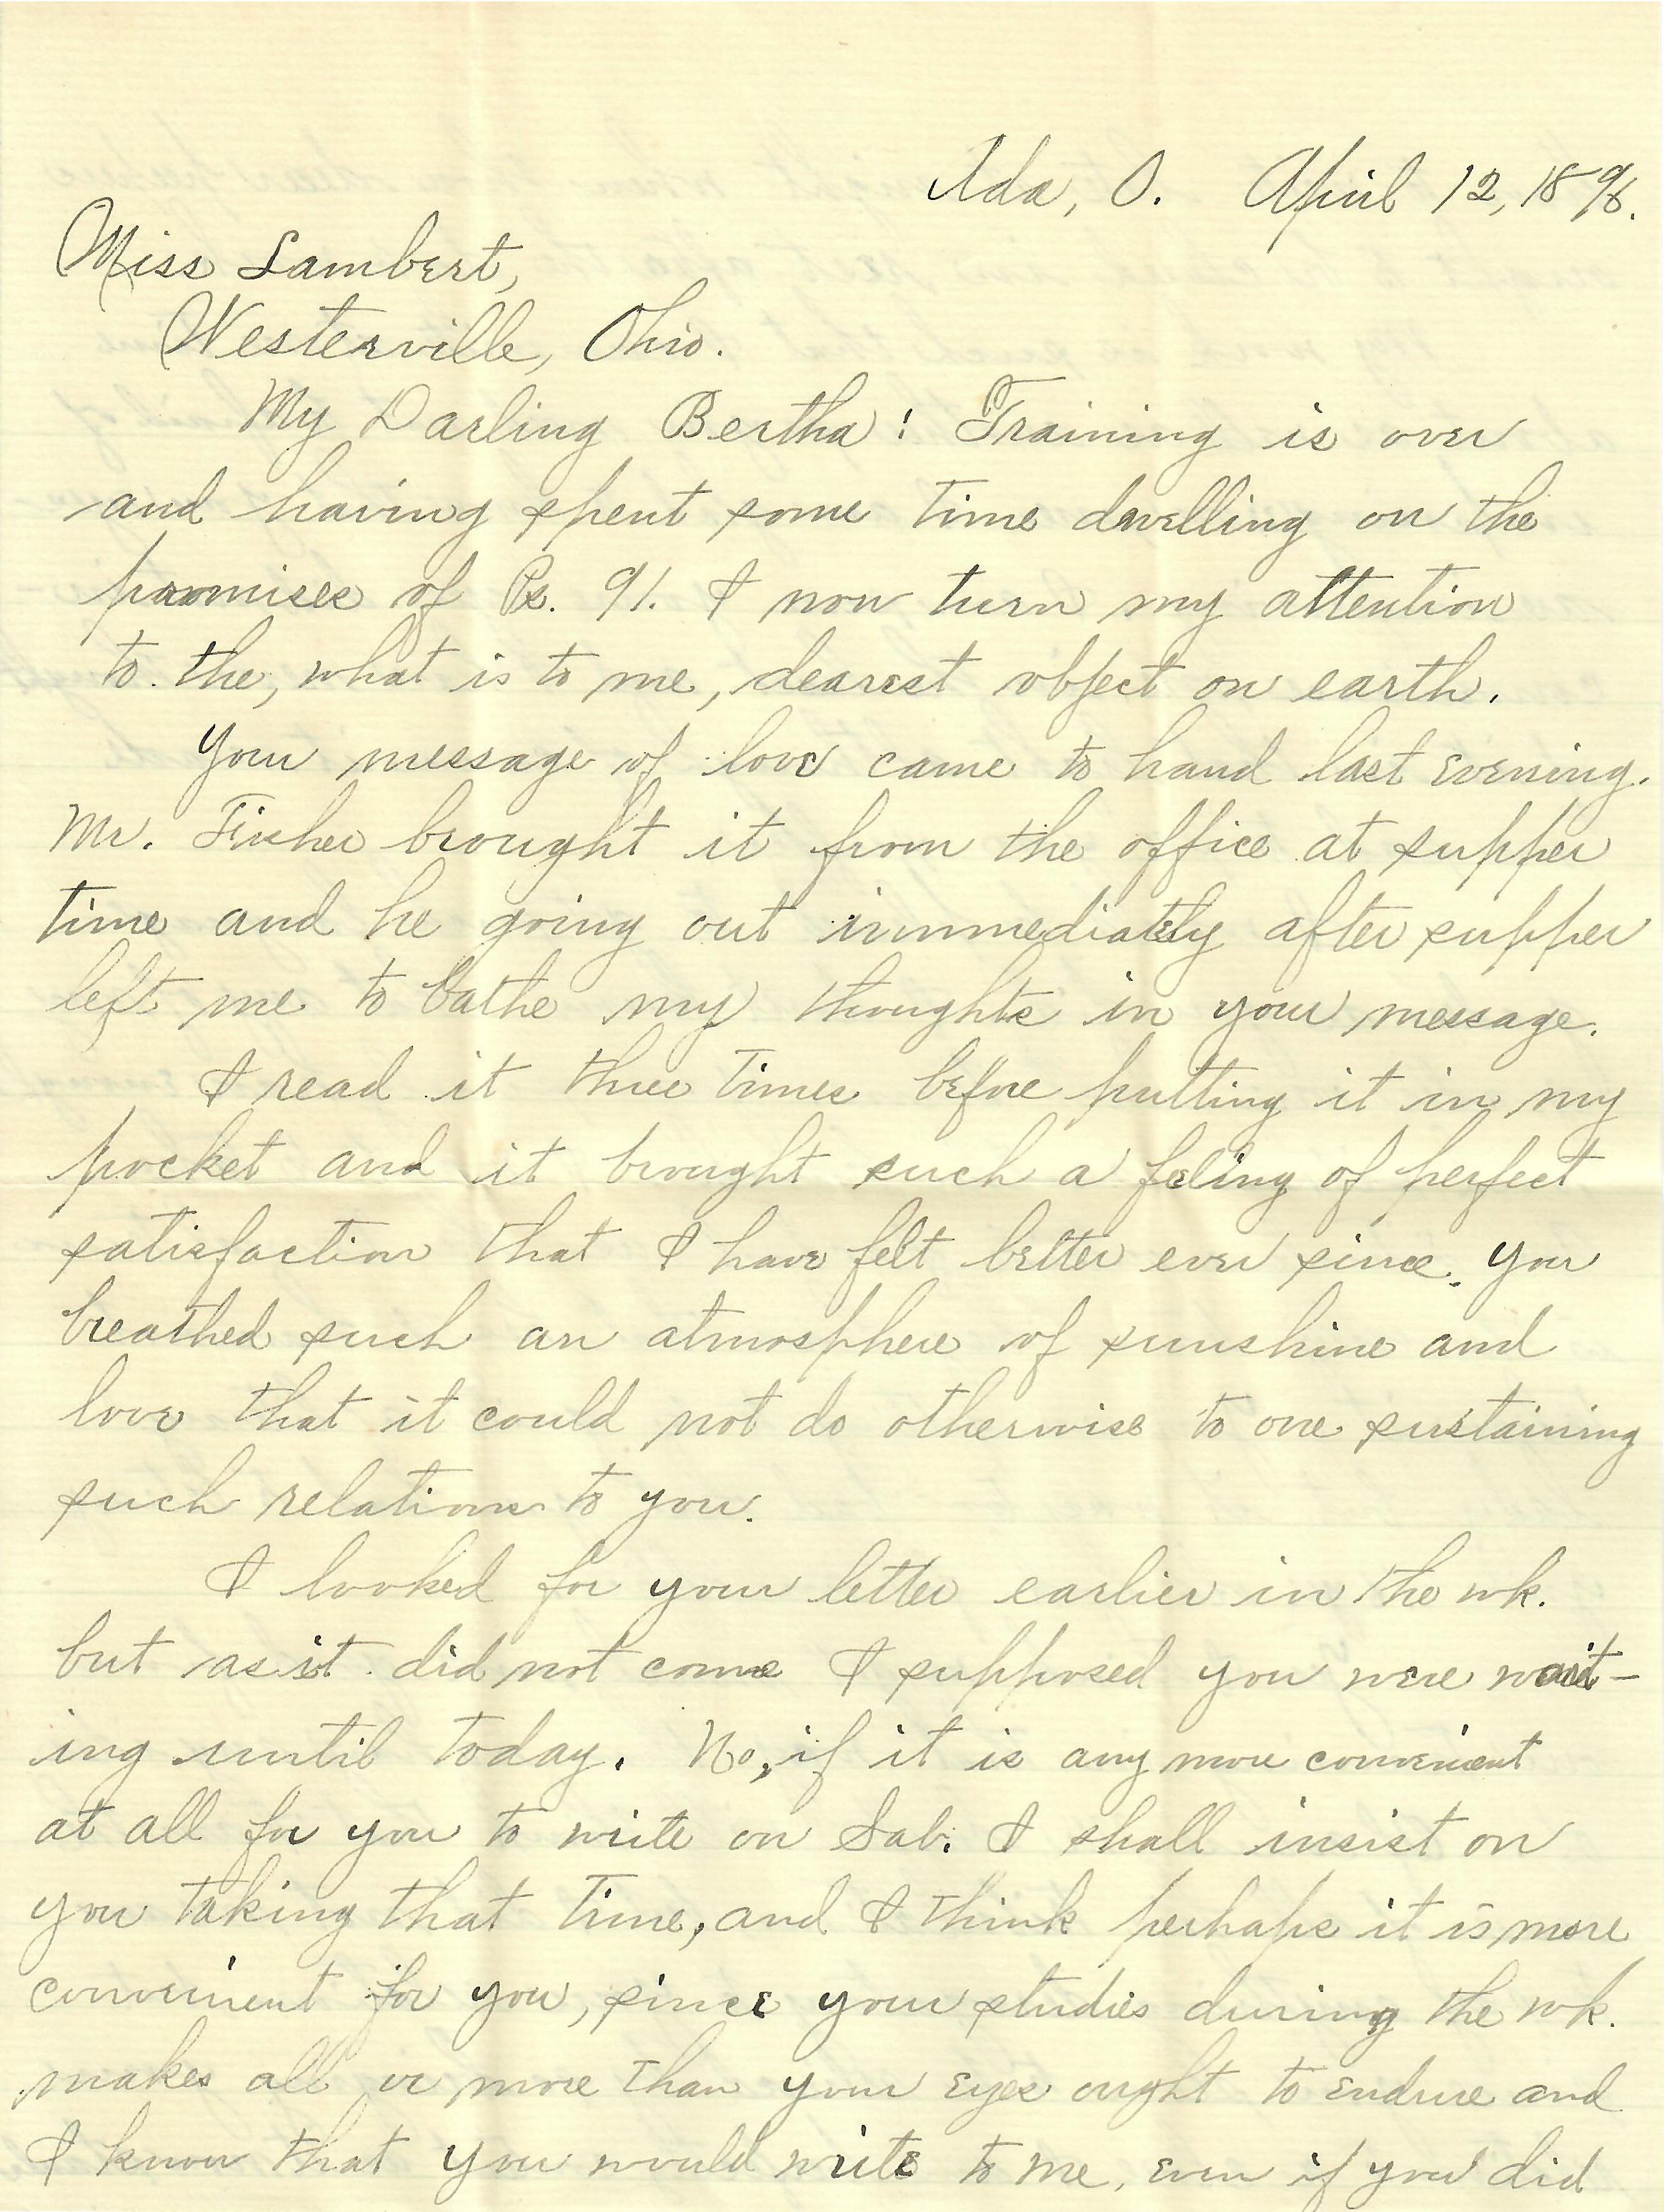 Ada, O. April 12, 1896.
Miss Lambert,
Westerville, Ohio.
My Darling Bertha: Training is over
and having spent some time dwelling on the
promises of Ps. 91. I now turn my attention
to the, what is to me, dearest object on earth.
Your message of love came to hand last evening.
Mr. Fisher brought it from the office at supper
time and he going out immediately after supper
left me to bathe my thoughts in your message.
I read it three times before putting it in my
pocket and it brought such a feling of perfect
satisfaction that I have felt better ever since. You
breathed such an atmosphere of sunshine and
love that it could not do otherwise to one sustaining
such relations to you.
I looked for your letter earlier in the wk.
but as it did not come I supposed you were wait-
ing until today. No, if it is any more convenient
at all for you to write on Sab. I shall insist on
you taking that time, and I think perhaps it is more
convenient for you, since your studies during the wk.
makes all or more than your eyes ought to endure and
I know that you would write to me, even if you did